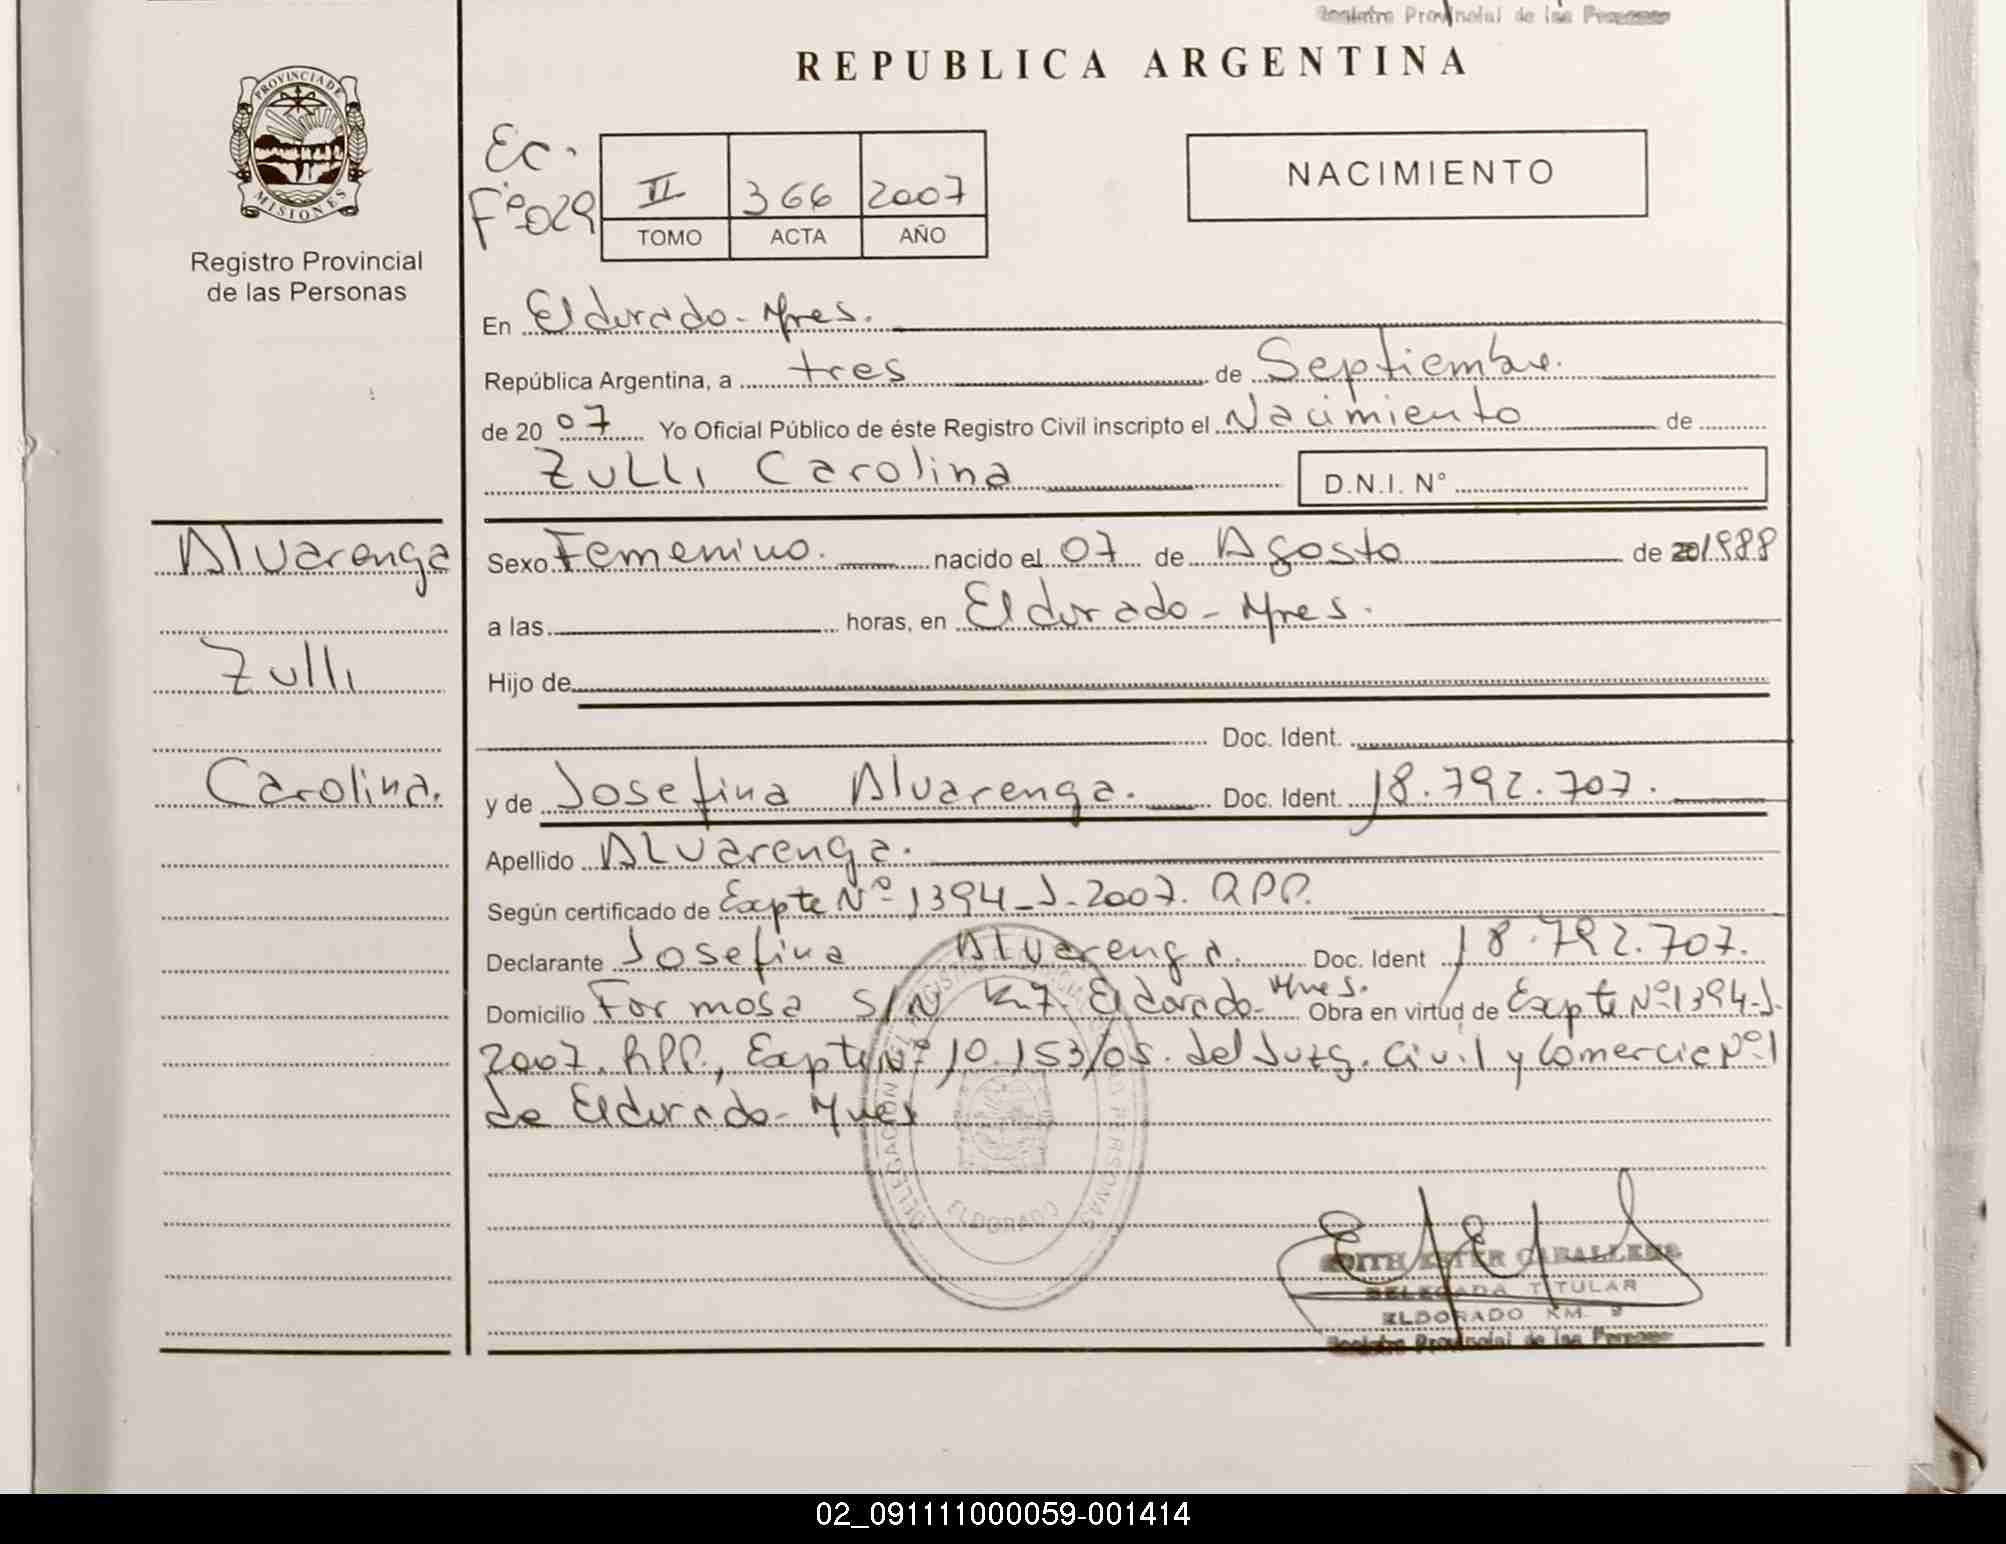 Registro Provincial de las Personas
REPUBLICA ARGENTINA
PROVINCIA DE
MISIONES
Registro Provincial
de las Personas
Ec.
Fº 029
II 366 2007
TOMO ACTA AÑO
NACIMIENTO
En Eldorado - Mnes.
República Argentina, a tres de Septiembre.
de 20 07 Yo Oficial Público de éste Registro Civil inscripto el Nacimiento de
Zulli Carolina D.N.I. Nº
Alvarenga
Zulli
Carolina.
Sexo Femenino. nacido el 07 de Agosto de 20 1988
a las horas, en Eldorado - Mnes.
Hijo de
Doc. Ident.
y de Josefina Alvarenga. Doc. Ident. 18.792.707.
Apellido Alvarenga.
Según certificado de Expte Nº 1394-J-2007. RPP.
Declarante Josefina Alvarenga. Doc. Ident 18.792.707.
Domicilio Formosa S/N Km 7. Eldorado - Mnes. Obra en virtud de Expte Nº 1394-J-
2007. RPP., Expte Nº 10.153/05. del Juzg. Civil y Comercial Nº 1
de Eldorado - Mnes
DELEGACIÓN DEL REGISTRO PROVINCIAL DE LAS PERSONAS
ELDORADO
EDITH ESTER CABALLERO
DELEGADA TITULAR
ELDORADO KM. 9
Registro Provincial de las Personas
02_091111000059-001414